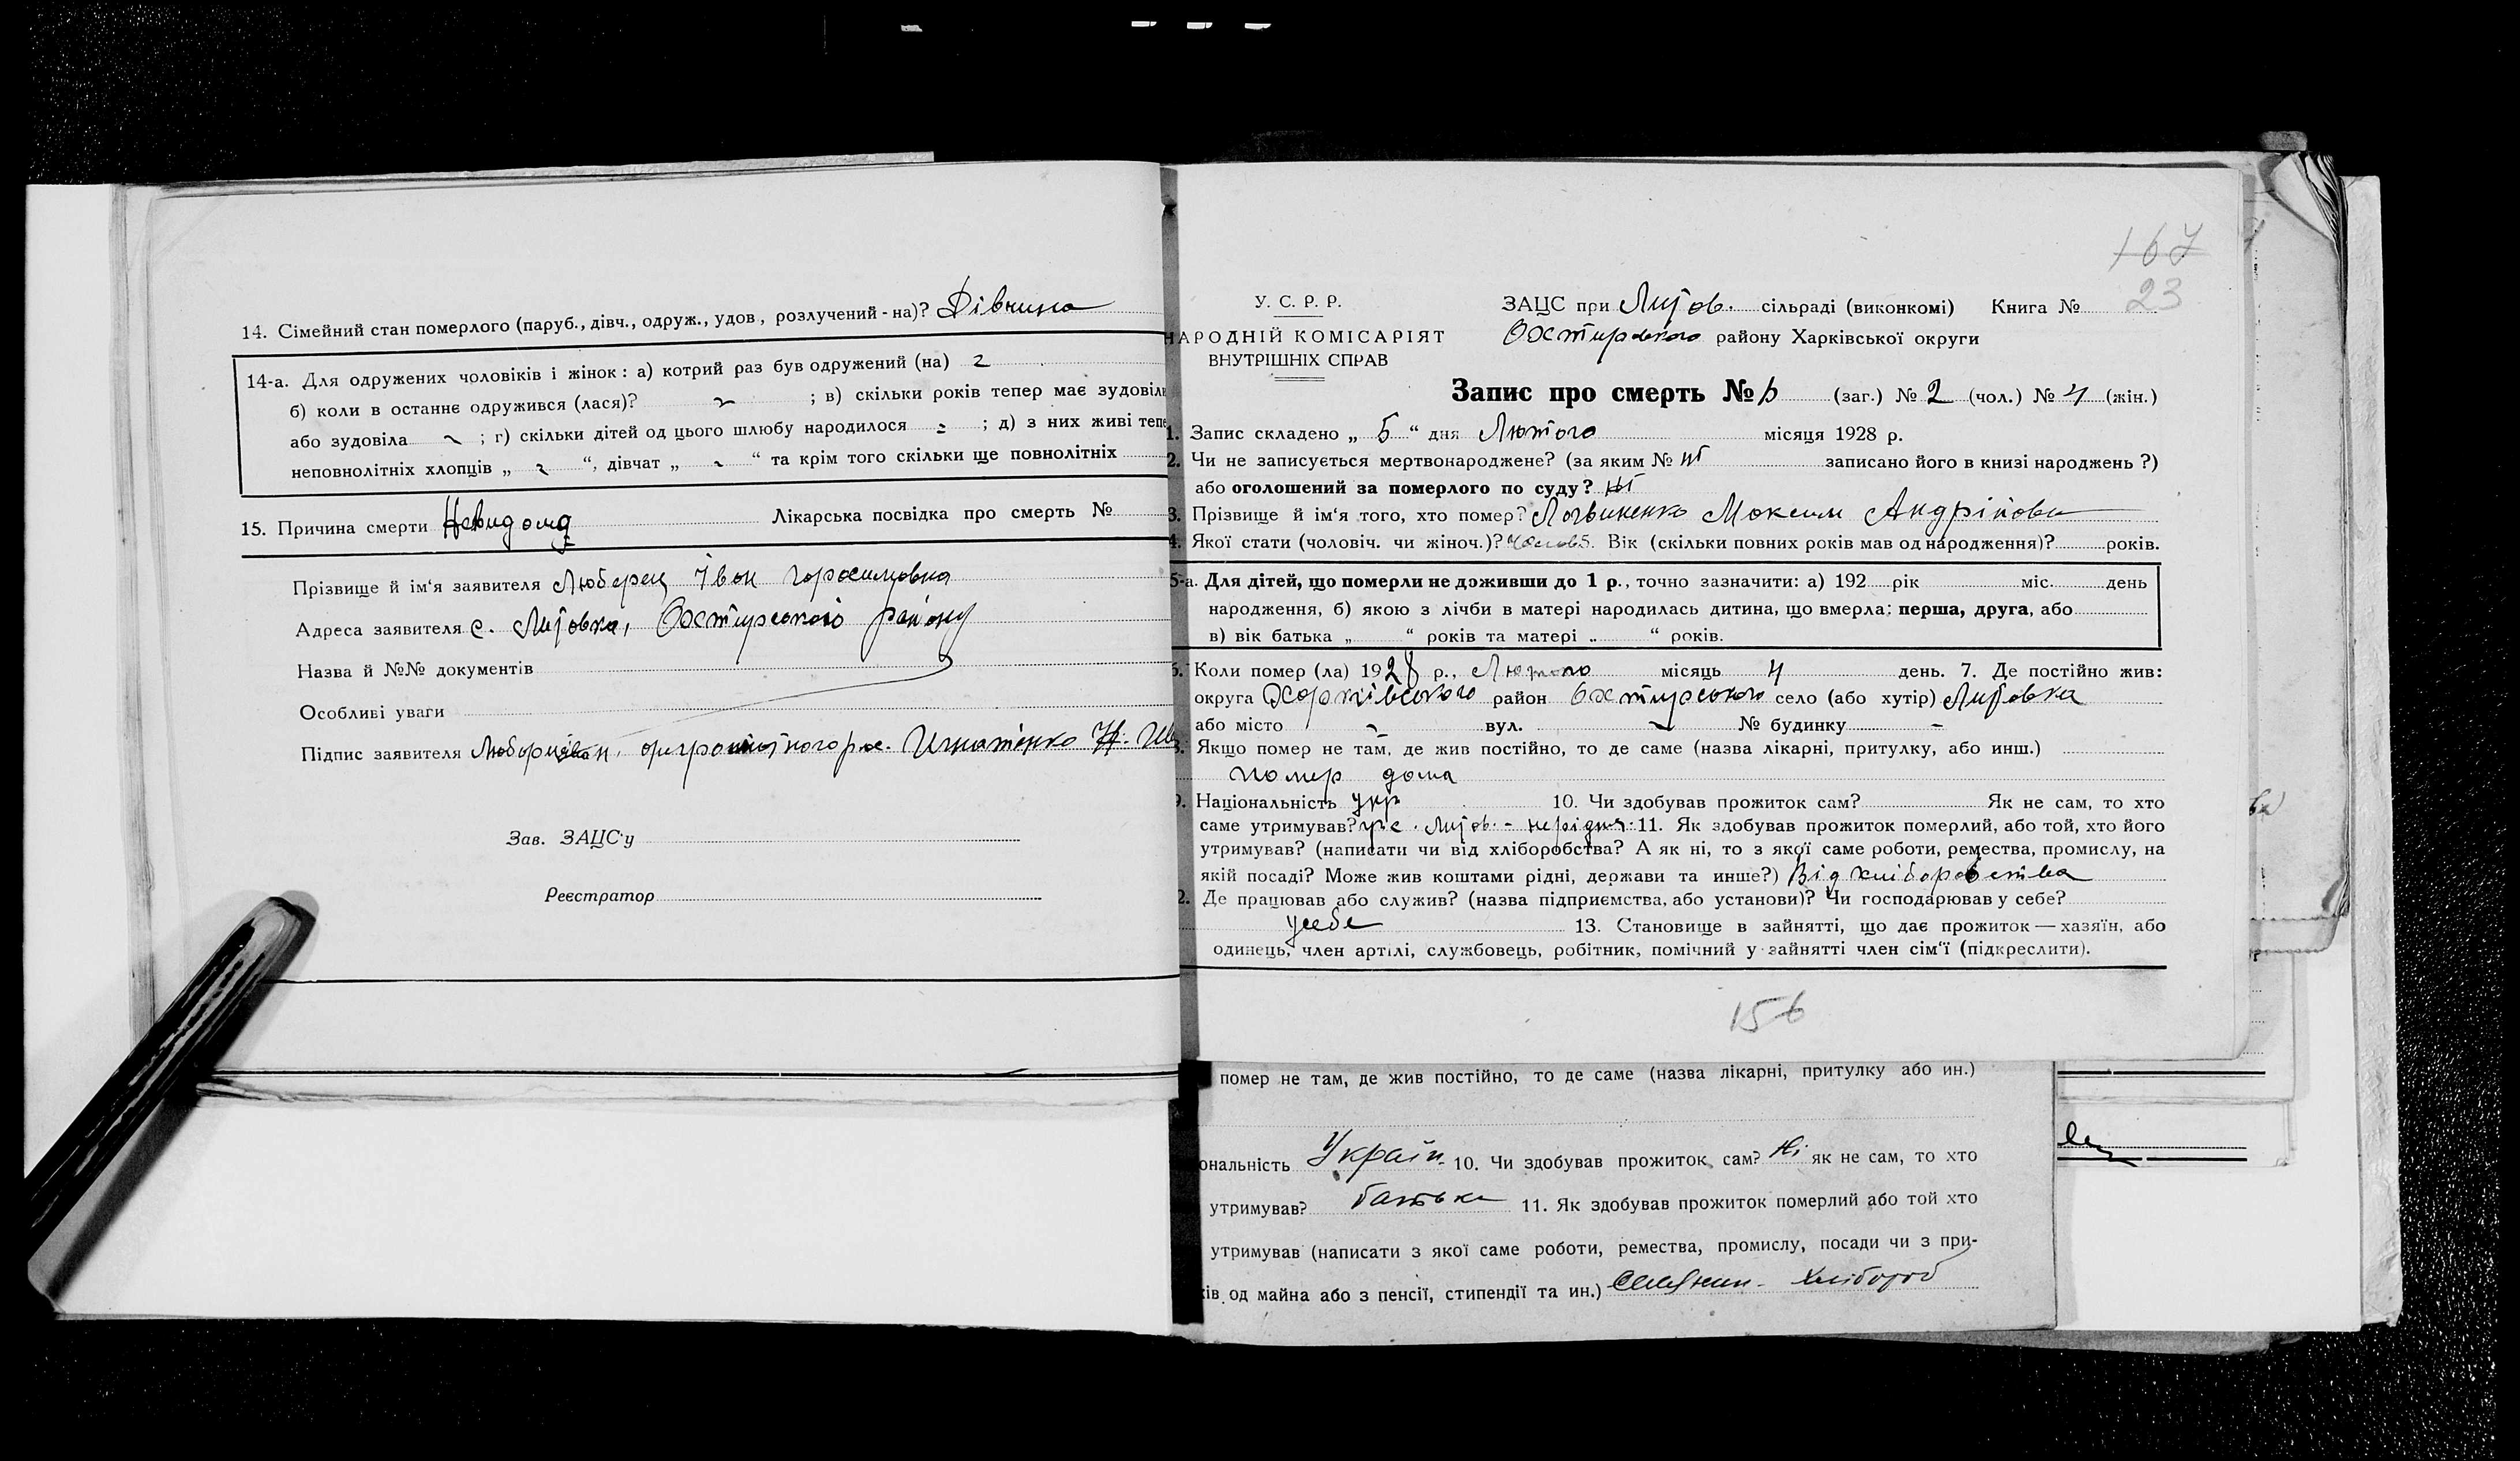 14. Сімейний стан померлого (паруб., дівч., одруж., удов., розлучений - на)? Дівчина
14-а. Для одружених чоловіків і жінок: а) котрий раз був одружений (на)
б) коли в останнє одружився (лася)? ; в) скільки років тепер має зудовіл
або зудовіла ; г) скільки дітей од цього шлюбу народилося ; д) з них живі тепе
неповнолітніх хлопців „ “, дівчат „ “ та крім того скільки ще повнолітніх
15. Причина смерти Невидома Лікарська посвідка про смерть №
Прізвище й ім‘я заявителя Люберец Iван
Адреса заявителя с. Охтирського району
Назва й №№ документів
Особливі уваги
Підпис заявителя Игнатенко
Зав. ЗАЦС‘у
Реєстратор
167
23
У. С. Р. Р.
НАРОДНІЙ КОМІСАРІЯТ
ВНУТРІШНІХ СПРАВ
ЗАЦС при сільраді (виконкомі) Книга №
Охтирського району Харківської округи
Запис про смерть № (заг.) № 2 (чол.) № 4 (жін.)
1. Запис складено „ 5 “ дня Лютого місяця 1928 р.
2. Чи не записується мертвонароджене? (за яким № ні записано його в книзі народжень ?)
або оголошений за померлого по суду? ні
3. Прізвище й ім‘я того, хто помер? Логвиненко Максим Андрійович
4. Якої стати (чоловіч. чи жіноч.)? чолов 5. Вік (скільки повних років мав од народження)? років.
5-а. Для дітей, що померли не доживши до 1 р., точно зазначити: а) 192 рік міс. день
народження, б) якою з лічби в матері народилась дитина, що вмерла: перша, друга, або
в) вік батька „ “ років та матері „ “ років.
6. Коли помер (ла) 1928 р., Лютого місяць 4 день. 7. Де постійно жив:
округа Харківського район Охтирського село (або хутір)
або місто вул. № будинку -
8. Якщо помер не там, де жив постійно, то де саме (назва лікарні, притулку, або инш.)
помер дома
9. Національність укр 10. Чи здобував прожиток сам? Як не сам, то хто
саме утримував? 11. Як здобував прожиток померлий, або той, хто його
утримував? (написати чи від хліборобства? А як ні, то з якої саме роботи, ремества, промислу, на
якій посаді? Може жив коштами рідні, держави та инше?) Від хліборобства
12. Де працював або служив? (назва підприємства, або установи)? Чи господарював у себе?
у себе 13. Становище в зайнятті, що дає прожиток — хазяїн, або
одинець, член артілі, службовець, робітник, помічний у зайнятті член сім‘ї (підкреслити).
156
помер не там, де жив постійно, то де саме (назва лікарні, притулку або ин.)
ональність Україн. 10. Чи здобував прожиток сам? Ні як не сам, то хто
утримував? батько 11. Як здобував прожиток померлий або той хто
утримував (написати з якої саме роботи, ремества, промислу, посади чи з при-
ків од майна або з пенсії, стипендії та ин.) Селянин - хлібороб